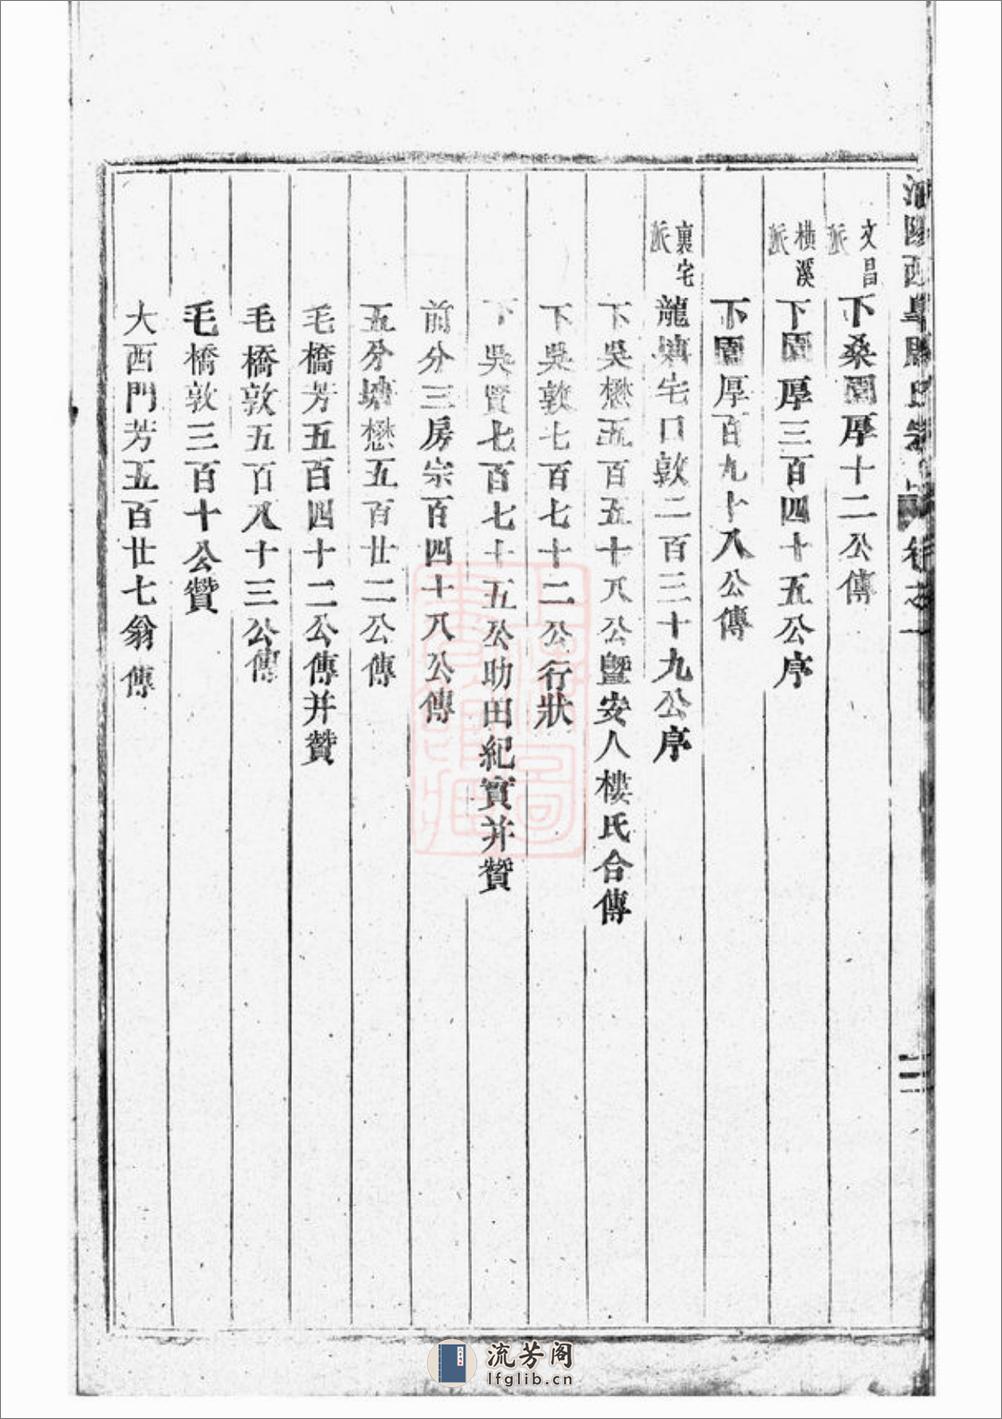 文昌派
下桑園厚十二公傳
橫溪派
下園厚三百四十五公序
下園厚百九十八公傳
裏宅派
龍塘宅口敦二百三十九公序
下吳懋五百五十八公暨安人樓氏合傳
下吳敦七百七十二公行狀
下吳賢七百七十五公助田紀實并贊
前分三房宗百四十八公傳
五分塘懋五百廿二公傳
毛橋芳五百四十二公傳并贊
毛橋敦五百八十三公傳
毛橋敦三百十公贊
大西門芳五百廿七翁傳
卷之一
二
流芳阁
lfglib.cn